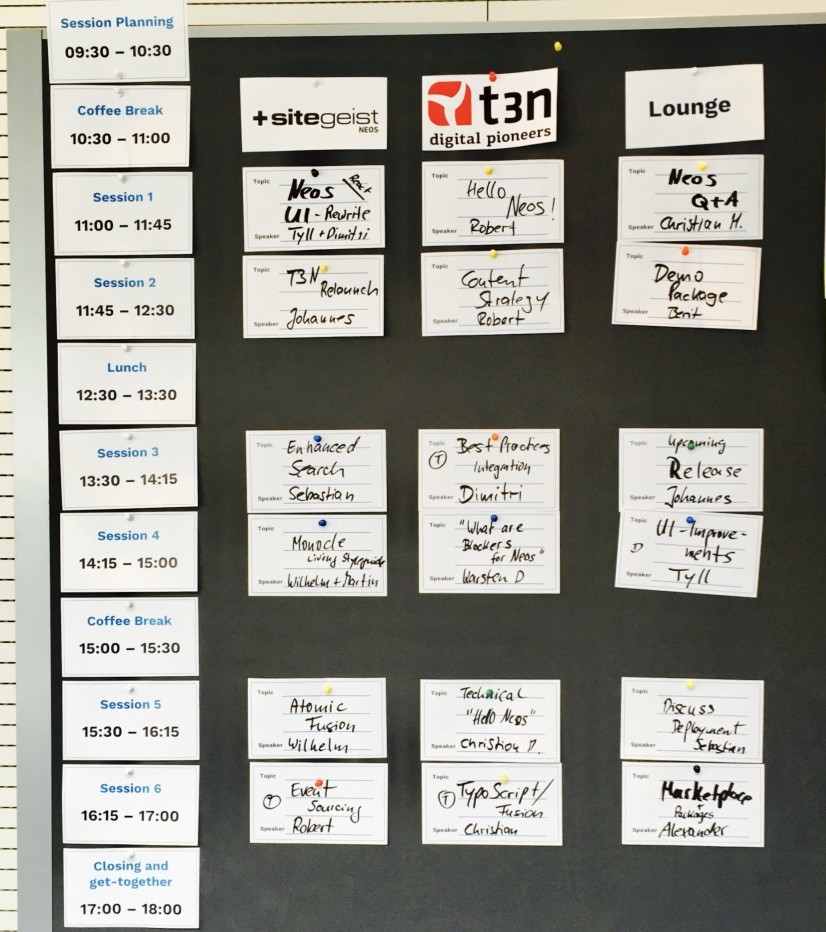 Session Planning
09:30 – 10:30
Coffee Break
10:30 – 11:00
+sitegeist
NEOS
t3n
digital pioneers
Lounge
Session 1
11:00 – 11:45
Topic
Neos React
UI - Rewrite
Speaker Tyll + Dimitri
Topic
Hello
Neos!
Speaker Robert
Topic
Neos
Q+A
Speaker Christian M.
Session 2
11:45 – 12:30
Topic
T3N
Relaunch
Speaker Johannes
Topic
Content
Strategy
Speaker Robert
Topic
Demo
Package
Speaker Berit
Lunch
12:30 – 13:30
Session 3
13:30 – 14:15
Topic Enhanced
Search
Speaker Sebastian
Topic Best Practices
T Integration
Speaker Dimitri
Topic Upcoming
Release
Speaker Johannes
Session 4
14:15 – 15:00
Topic
Monocle
Living Styleguide
Speaker Wilhelm + Martin
Topic "What are
Blockers
for Neos"
Speaker Karsten D
Topic UI-Improve-
D ments
Speaker Tyll
Coffee Break
15:00 – 15:30
Session 5
15:30 – 16:15
Topic
Atomic
Fusion
Speaker Wilhelm
Topic Technical
"Hello Neos"
Speaker Christian D.
Topic
Discuss
Deployment
Speaker Sebastian
Session 6
16:15 – 17:00
Topic
T Event
Sourcing
Speaker Robert
Topic
T TypoScript/
Fusion
Speaker Christian
Topic
Marketplace
+
Packages
Speaker Alexander
Closing and
get-together
17:00 – 18:00